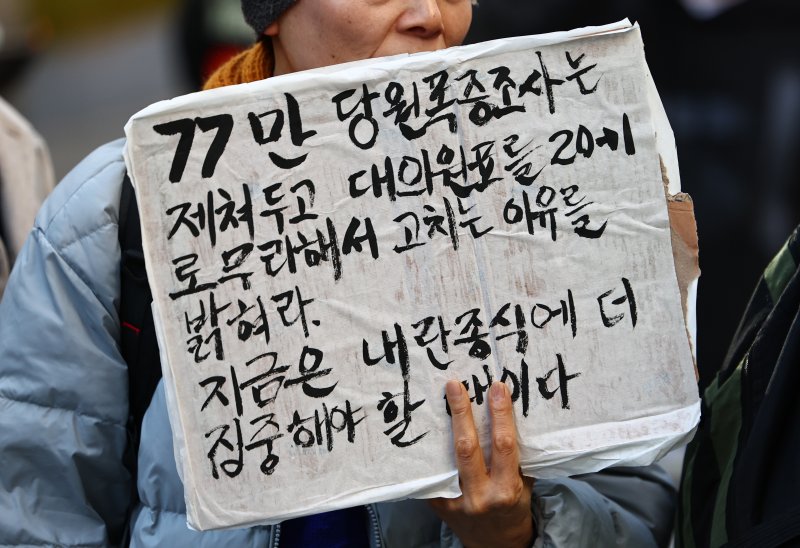 77만 당원폭증조사는
제쳐두고 대의원표를 20에
로무라해서 고치는 이유를
밝혀라.
지금은 내란종식에 더
집중해야 할 때이다